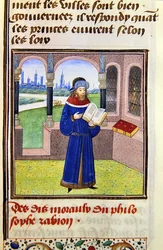 ment les villes sont bien
gouvernees il respondy quāt
les princes vivent selon
les loix
Des dis moraulx du philo
sophe rabion